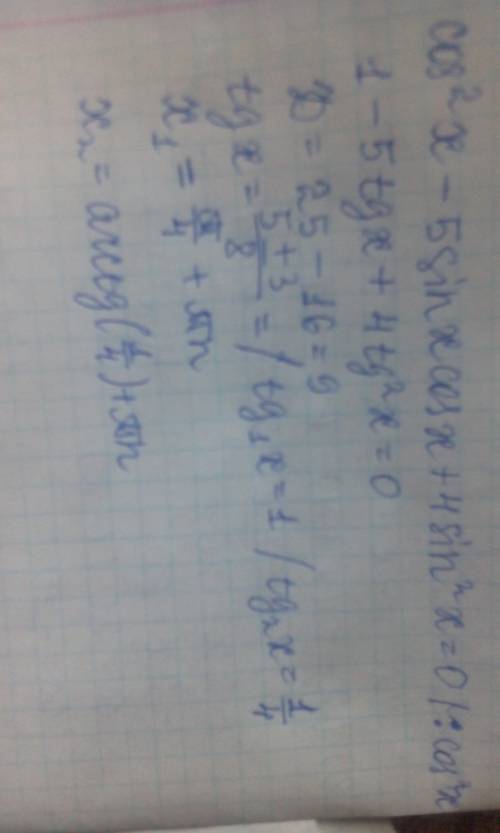 cos²x − 5sinxcosx + 4sin²x = 0 /: cos²x
1 − 5tgx + 4tg²x = 0
D = 25 − 16 = 9
tgx = (5 + 3)/8 = / tg₁x = 1 / tg₂x = 1/4
x₁ = π/4 + πn
x₂ = arctg(1/4) + πn